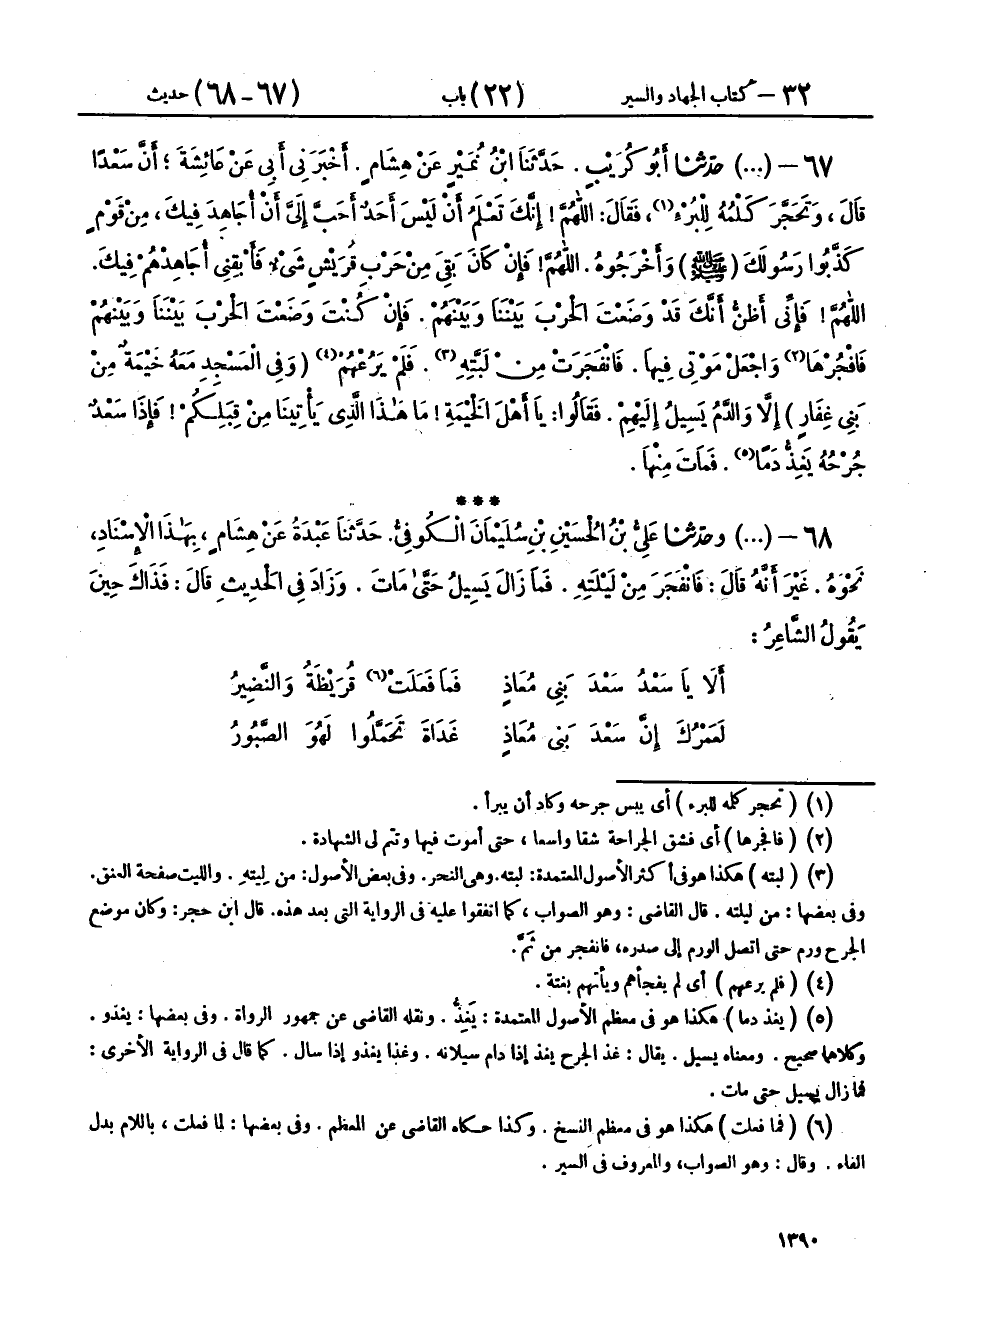 ٣٢ - كتاب الجهاد والسير (٢٢) باب (٦٧-٦٨) حديث
٦٧ - (...) حدّثنا أَبُو كُرَيْبٍ . حَدَّثَنَا ابْنُ نُمَيْرٍ عَنْ هِشَامٍ . أَخْبَرَنِى أَبِى عَنْ عَائِشَةَ ؛ أَنَّ سَعْدًا
قَالَ ، وَتَحَجَّرَ كَلْمُهُ لِلْبُرْءِ(١)، فَقَالَ: اللّٰهُمَّ ! إِنَّكَ تَعْلَمُ أَنْ لَيْسَ أَحَدٌ أَحَبَّ إِلَىَّ أَنْ أُجَاهِدَ فِيكَ ، مِنْ قَوْمٍ
كَذَّبُوا رَسُولَكَ (ﷺ) وَأَخْرَجُوهُ . اللّٰهُمَّ! فَإِنْ كَانَ بَقِىَ مِنْ حَرْبِ قُرَيْشٍ شَىْءٌ فَأَبْقِنِى أُجَاهِدْهُمْ فِيكَ.
اللّٰهُمَّ! فَإِنِّى أَظُنُّ أَنَّكَ قَدْ وَضَعْتَ الْحَرْبَ بَيْنَنَا وَبَيْنَهُمْ . فَإِنْ كُنْتَ وَضَعْتَ الْحَرْبَ بَيْنَنَا وَبَيْنَهُمْ
فَافْجُرْهَا(٢) وَاجْعَلْ مَوْتِى فِيهَا . فَانْفَجَرَتْ مِنْ لَبَّتِهِ(٣) . فَلَمْ يَرُعْهُمْ(٤) (وَفِى الْمَسْجِدِ مَعَهُ خَيْمَةٌ مِنْ
بَنِى غِفَارٍ) إِلَّا وَالدَّمُ يَسِيلُ إِلَيْهِمْ . فَقَالُوا: يَا أَهْلَ الْخَيْمَةِ ! مَا هٰذَا الَّذِى يَأْتِينَا مِنْ قِبَلِكُمْ ! فَإِذَا سَعْدٌ
جُرْحُهُ يَغِذُّ دَمًا(٥) . فَمَاتَ مِنْهَا .
***
٦٨ - (...) وحدّثنا عَلِىُّ بْنُ الْحُسَيْنِ بْنِ سُلَيْمَانَ الْكُوفِىُّ. حَدَّثَنَا عَبْدَةُ عَنْ هِشَامٍ ، بِهٰذَا الْإِسْنَادِ،
نَحْوَهُ . غَيْرَ أَنَّهُ قَالَ : فَانْفَجَرَ مِنْ لَيْلَتِهِ . فَمَا زَالَ يَسِيلُ حَتَّى مَاتَ . وَزَادَ فِى الْحَدِيثِ قَالَ : فَذَاكَ حِينَ
يَقُولُ الشَّاعِرُ :
أَلَا يَا سَعْدُ سَعْدَ بَنِى مُعَاذٍ فَمَا فَعَلَتْ(٦) قُرَيْظَةُ وَالنَّضِيرُ
لَعَمْرُكَ إِنَّ سَعْدَ بَنِى مُعَاذٍ غَدَاةَ تَحَمَّلُوا لَهُوَ الصَّبُورُ
(١) (تحجر كلمه للبرء) أى يبس جرحه وكاد أن يبرأ .
(٢) (فافجرها) أى فشق الجراحة شقا واسعا ، حتى أموت فيها وتتم لى الشهادة .
(٣) (لبته) هكذا هو فى أكثر الأصول المعتمدة: لبته. وهى النحر. وفى بعض الأصول: من لِيتِهِ . والليت صفحة العنق.
وفى بعضها : من ليلته . قال القاضى : وهو الصواب ، كما اتفقوا عليه فى الرواية التى بعد هذه. قال ابن حجر: وكان موضع
الجرح ورم حتى اتصل الورم إلى صدره، فانفجر من ثَمَّ.
(٤) (فلم يرعهم) أى لم يفجأهم ويأتهم بغتة .
(٥) (يغذ دما) هكذا هو فى معظم الأصول المعتمدة : يَغِذُّ . ونقله القاضى عن جمهور الرواة . وفى بعضها : يغذو .
وكلاهما صحيح . ومعناه يسيل . يقال : غذ الجرح يغذ إذا دام سيلانه . وغذا يغذو إذا سال . كما قال فى الرواية الأخرى :
فما زال يسيل حتى مات .
(٦) (فما فعلت) هكذا هو فى معظم النسخ . وكذا حكاه القاضى عن المعظم . وفى بعضها : لما فعلت ، باللام بدل
الفاء . وقال : وهو الصواب، والمعروف فى السير .
١٣٩٠